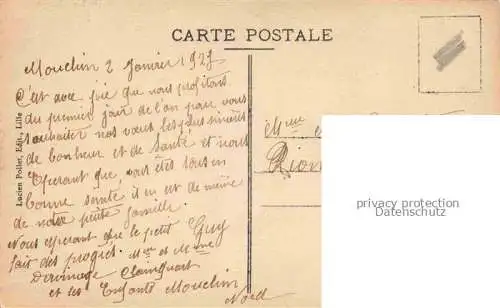 CARTE POSTALE
Mouchin 2 Janvier 1927
C'est avec joie que nous profitons
du premier jour de l'an pour vous
souhaiter nos vœux les plus sincères
de bonheur et de santé et nous
Esperant que vous êtes tous en
bonne santé il en est de même
de notre petite famille.
Nous esperant que le petit Guy
fait des progrès. Mr et Mme
et les Enfants Mouchin
Nord
Lucien Pollet, Edit., Lille
Mme
privacy protection
Datenschutz